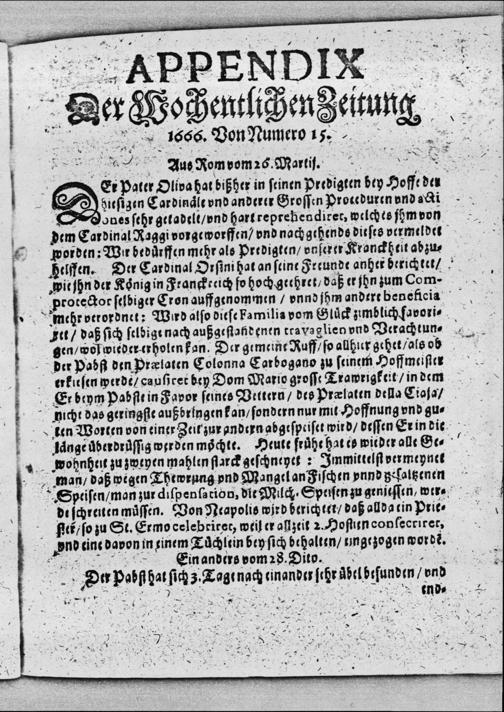 APPENDIX
Der Wochentlichen Zeitung
1666. Von Numero 15.
Aus Rom vom 26. Martij.
DEr Pater Oliva hat bißher in seinen Predigten bey Hoffe der
hiesigen Cardinäle und anderer Grossen Proceduren und acti
ones sehr getadelt / und hart reprehendiret, welches jhm von
dem Cardinal Raggi vorgeworffen / und nachgehends dieses vermeldet
worden: Wir bedürffen mehr als Predigten / unserer Kranckheit abzu-
helffen. Der Cardinal Orsini hat an seine Freunde anher berichtet /
wie jhn der König in Franckreich so hoch geehret / daß er jhn zum Com-
protector selbiger Cron auffgenommen / unnd jhm andere beneficia
mehr verordnet: Wird also diese Familia vom Glück zimblich favori-
ret / daß sich selbige nach außgestandenen travaglien und Verachtun-
gen / wol wieder erholen kan. Der gemeine Ruff / so allhier gehet / als ob
der Pabst den Prælaten Colonna Carbogano zu seinem Hoffmeister
erkiesen werde / causiret bey Dom Mario grosse Trawrigkeit / in dem
Er beym Pabste in Favor seines Vettern / des Prælaten della Ciaja /
nicht das geringste außbringen kan / sondern nur mit Hoffnung und gu-
ten Worten von einer Zeit zur andern abgespeiset wird / dessen Er in die
länge überdrüssig werden möchte. Heute frühe hat es wieder alle Ge-
wohnheit zu zweyen mahlen starck geschneyet: Immittelst vermeynet
man / daß wegen Thewrung und Mangel an Fischen unnd gesaltzenen
Speisen / man zur dispensation, die Milch-Speisen zu geniessen, wer-
de schreiten müssen. Von Neapolis wird berichtet / daß allda ein Prie-
ster / so zu St. Ermo celebriret, weil er allzeit 2. Hostien consecriret,
und eine davon in einem Tüchlein bey sich behalten / eingezogen wordē.
Ein anders vom 28. Dito.
Der Pabst hat sich 3. Tage nach einander sehr übel befunden / und
end-